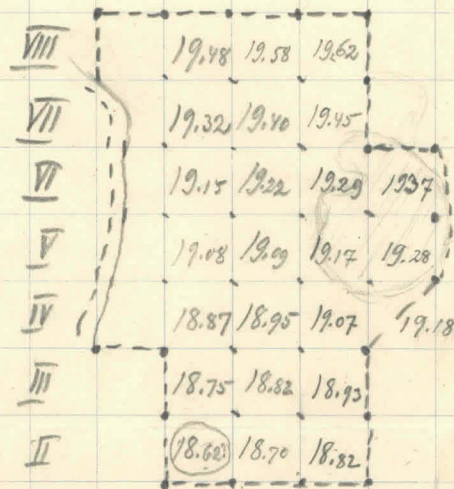 VIII 19.48 19.58 19.62
VII 19.32 19.40 19.45
VI 19.15 19.22 19.29 1937
V 19.08 19.09 19.17 19.28
IV 18.87 18.95 19.07 19.18
III 18.75 18.82 18.93
II 18.62 18.70 18.82